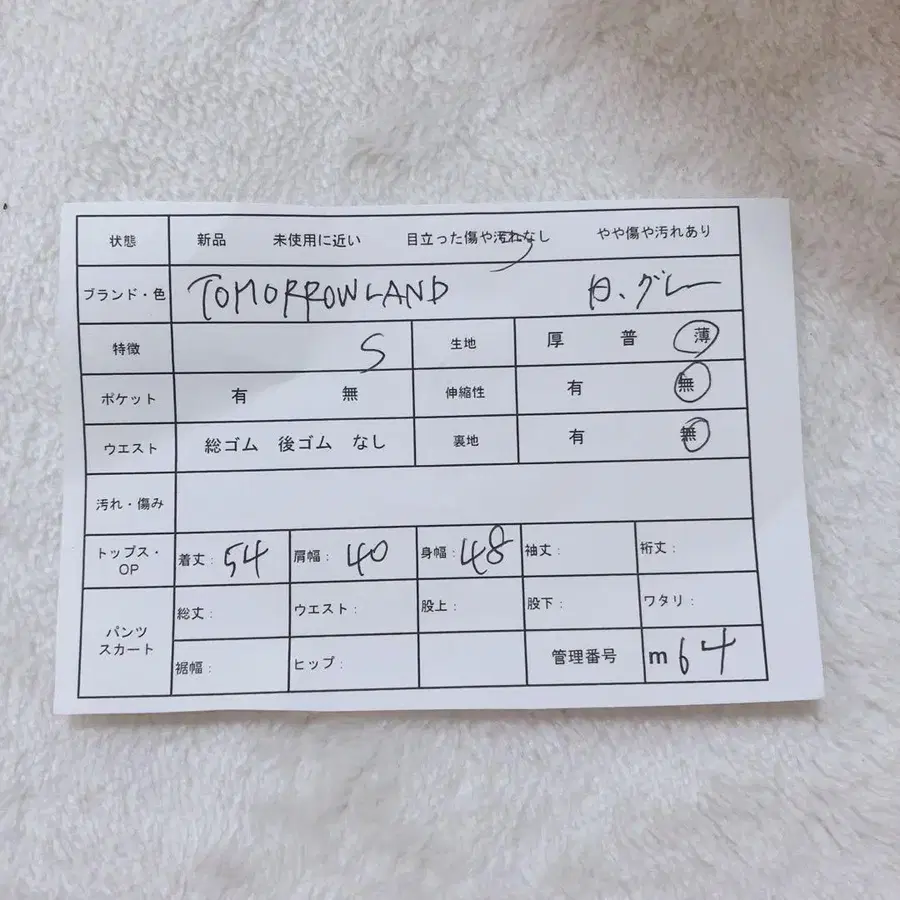 状態 新品 未使用に近い 目立った傷や汚れなし やや傷や汚れあり
ブランド・色 TOMORROWLAND 白、グレー
特徴 S 生地 厚 普 薄
ポケット 有 無 伸縮性 有 無
ウエスト 総ゴム 後ゴム なし 裏地 有 無
汚れ・傷み
トップス・OP 着丈: 54 肩幅: 40 身幅: 48 袖丈: 裄丈:
パンツ スカート 総丈: ウエスト: 股上: 股下: ワタリ:
裾幅: ヒップ: 管理番号 m 64